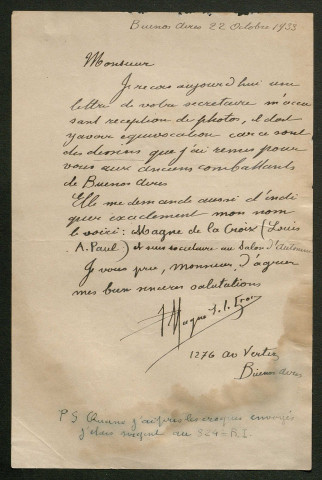 Buenos Aires 22 Octobre 1933
Monsieur
Je recois aujourd'hui une
lettre de votre secretaire m'accu
sant reception de photos, il doit
y avoir equivocation car ce sont
des dessins que j'ai remis pour
vous aux anciens combattants
de Buenos Aires
Elle me demande aussi d'indi
quer exactement mon nom
le voici: Magne de la Croix (Louis
A. Paul) et suis societaire au Salon d'Automne
Je vous prie, Monsieur, d'agreer
mes bien sinceres salutations
Magne d. l. Croix
1276 av Vertiz
Buenos Aires
P S Quand j'ai pris les croquis envoyés
j'étais sergent au R.I.